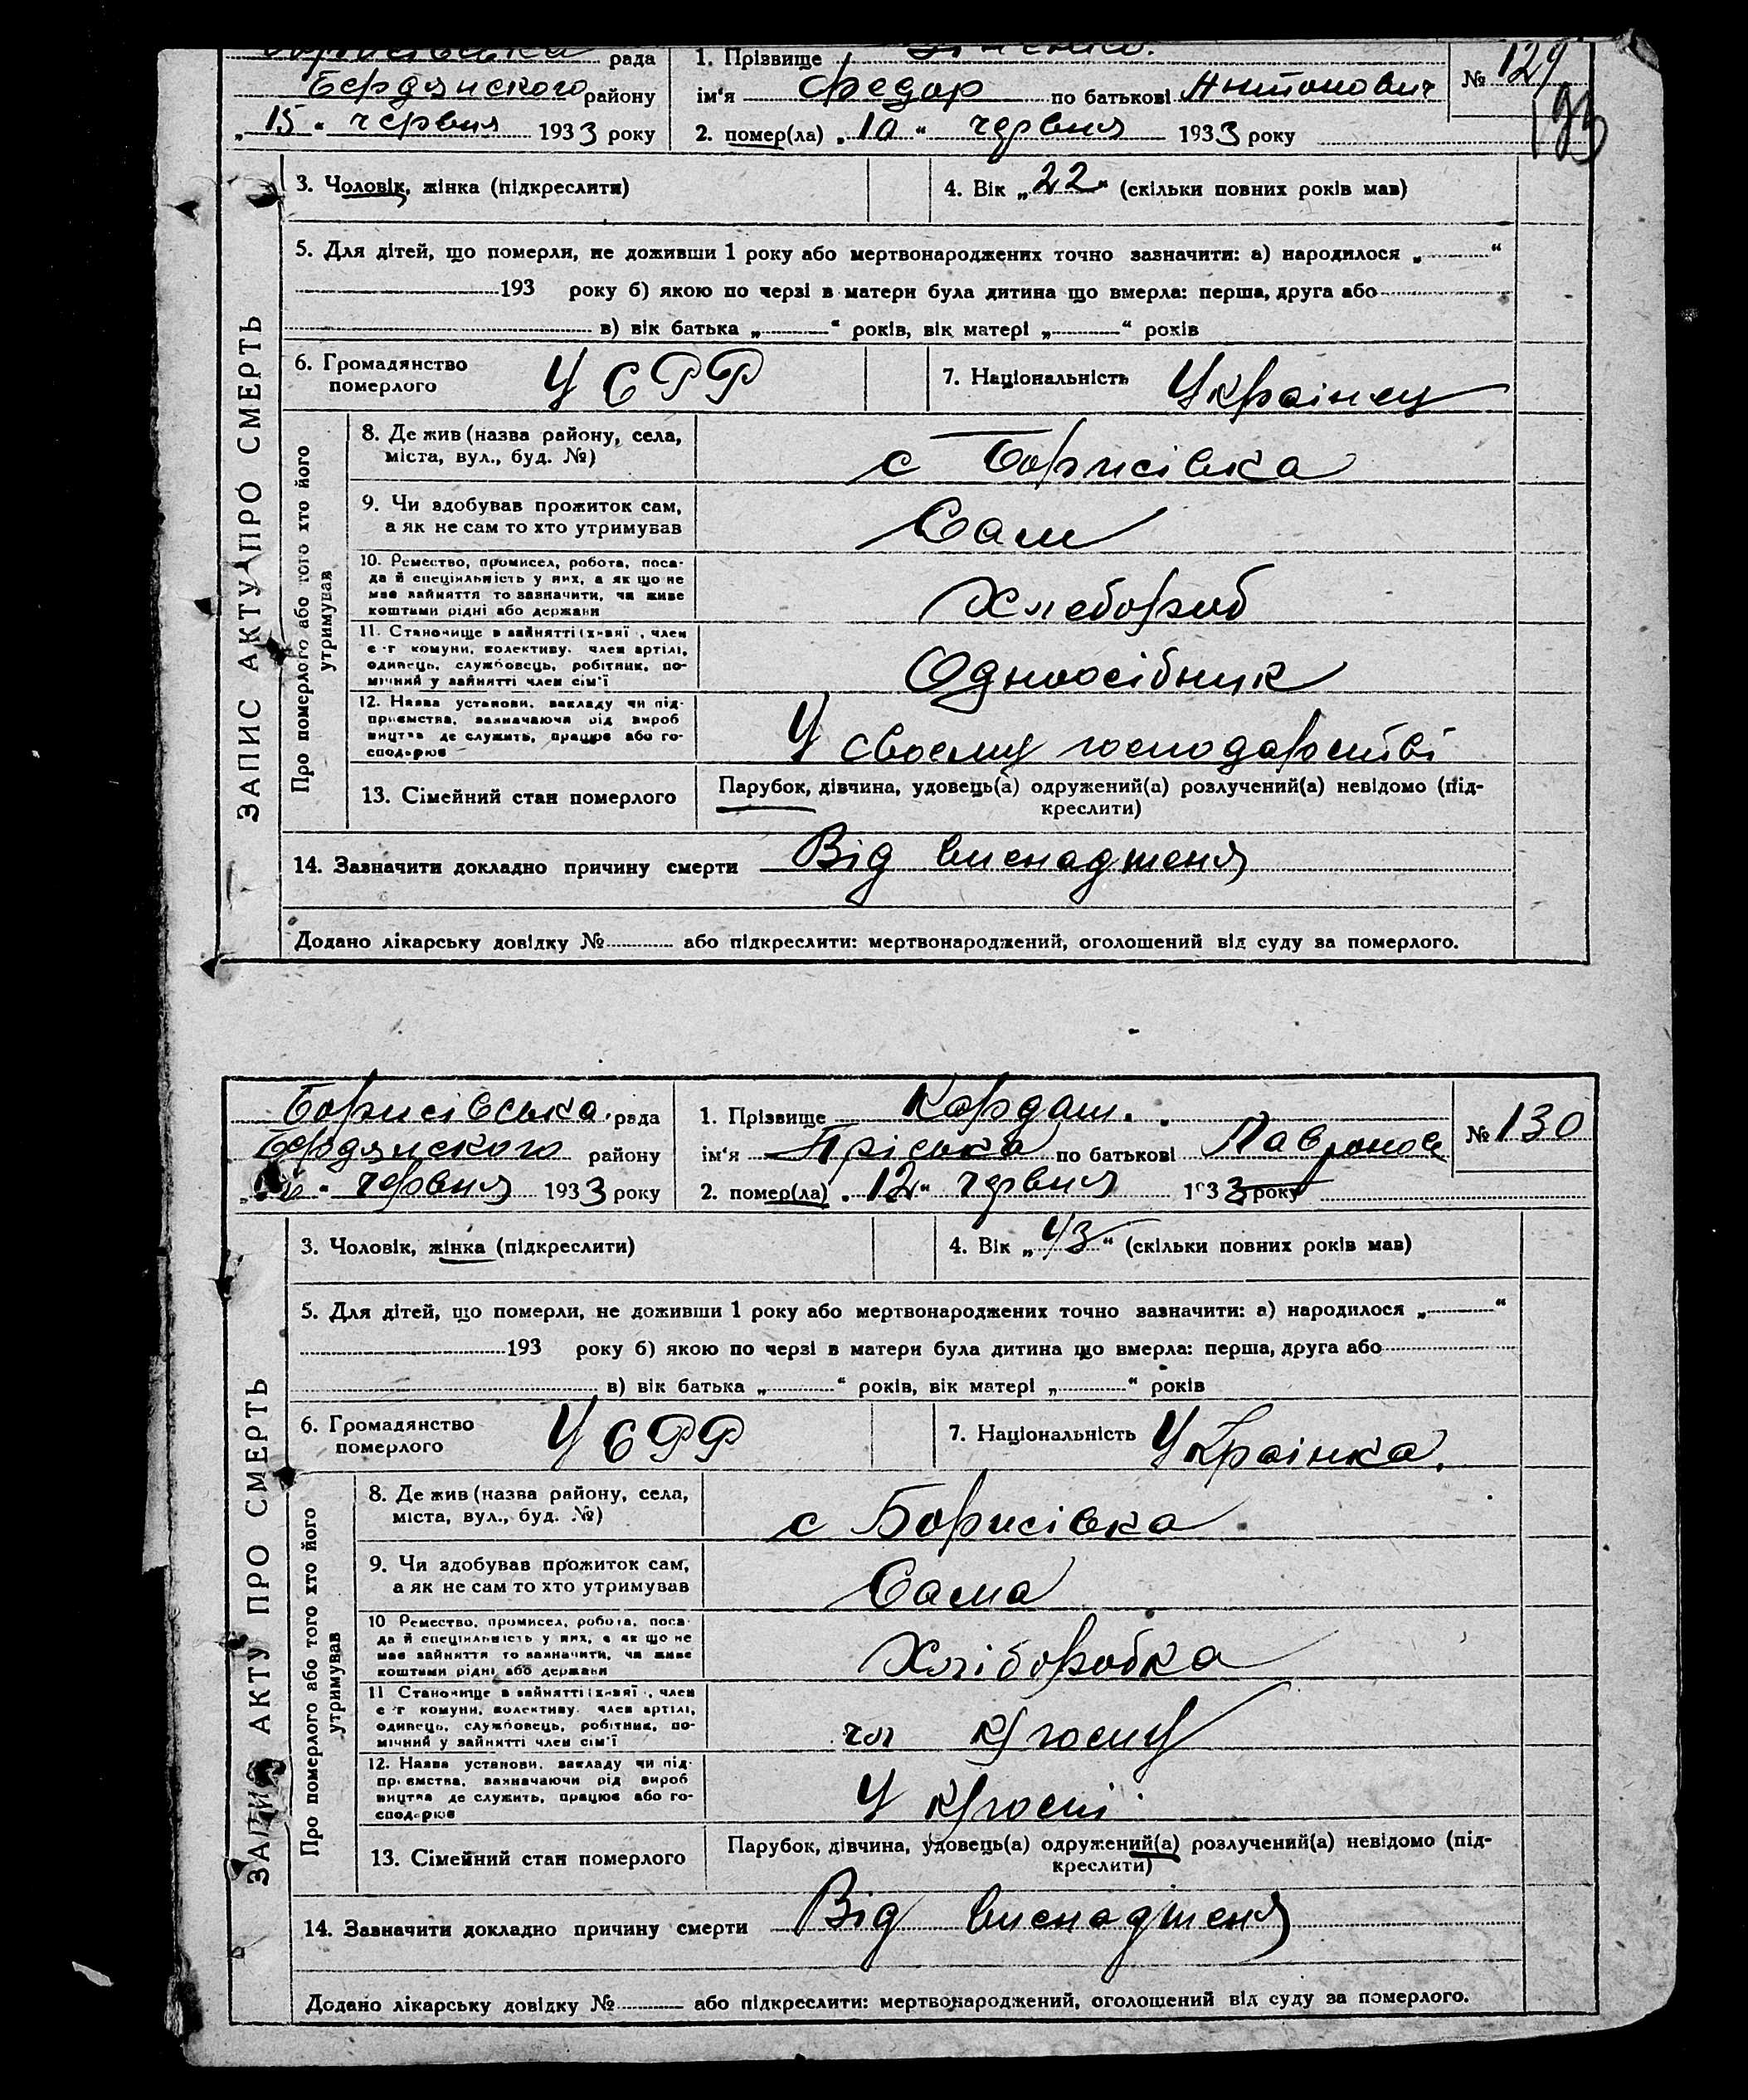 рада
Бердянского району
„15“ червня 1933 року
1. Прізвище
ім'я Федор по батькові Антонович
2. помер(ла) „10“ червня 1933 року
№ 129
193
ЗАПИС АКТУ ПРО СМЕРТЬ
3. Чоловік, жінка (підкреслити)
4. Вік „22“ (скільки повних років мав)
5. Для дітей, що померли, не доживши 1 року або мертвонароджених точно зазначити: а) народилося „ “
193 року б) якою по черзі в матери була дитина що вмерла: перша, друга або
в) вік батька „ “ років, вік матері „ “ років
6. Громадянство
померлого
УСРР
7. Національність Українец
Про померлого або того хто його
утримував
8. Де жив (назва району, села,
міста, вул., буд. №)
с Борисівка
9. Чи здобував прожиток сам,
а як не сам то хто утримував
Сам
10. Ремество, промисел, робота, поса-
да й спеціяльність у них, а як що не
має зайняття то зазначити, чи живе
коштами рідні або держави
Хлебороб
11. Становище в зайнятті , член
с-г комуни, колективу, член артілі,
одинець, службовець, робітник, по-
мічний у зайнятті член сім'ї
Одноосібник
12. Назва установи, закладу чи під-
приємства, зазначаючи рід вироб
ництва де служить, працює або го-
сподарює
У своєму господарстві
13. Сімейний стан померлого
Парубок, дівчина, удовець(а) одружений(а) розлучений(а) невідомо (під-
креслити)
14. Зазначити докладно причину смерти Від виснадженя
Додано лікарську довідку № або підкреслити: мертвонароджений, оголошений від суду за померлого.
Борисівська рада
Бердянского району
червня 1933 року
1. Прізвище Кардаш.
ім'я Пріська по батькові Лавронов
2. помер(ла) „12“ червня 1933 року
№ 130
ЗАПИС АКТУ ПРО СМЕРТЬ
3. Чоловік, жінка (підкреслити)
4. Вік „43“ (скільки повних років мав)
5. Для дітей, що померли, не доживши 1 року або мертвонароджених точно зазначити: а) народилося „ “
193 року б) якою по черзі в матери була дитина що вмерла: перша, друга або
в) вік батька „ “ років, вік матері „ “ років
6. Громадянство
померлого
УСРР
7. Національність Українка.
Про померлого або того хто його
утримував
8. Де жив (назва району, села,
міста, вул., буд. №)
с Борисівка
9. Чи здобував прожиток сам,
а як не сам то хто утримував
Сама
10 Ремество, промисел, робота, поса-
да й спеціяльність у них, а як що не
має зайняття то зазначити, чи живе
коштами рідні або держави
Хліборобка
11 Становище в зайнятті , член
с-г комуни, колективу, член артілі,
одинець, службовець, робітник, по-
мічний у зайнятті член сім'ї
чл к/госпу
12. Назва установи, закладу чи під-
приємства, зазначаючи рід вироб
ництва де служить, працює або го-
сподарює
У к/госпі
13. Сімейний стан померлого
Парубок, дівчина, удовець(а) одружений(а) розлучений(а) невідомо (під-
креслити)
14. Зазначити докладно причину смерти Від виснадженя
Додано лікарську довідку № або підкреслити: мертвонароджений, оголошений від суду за померлого.